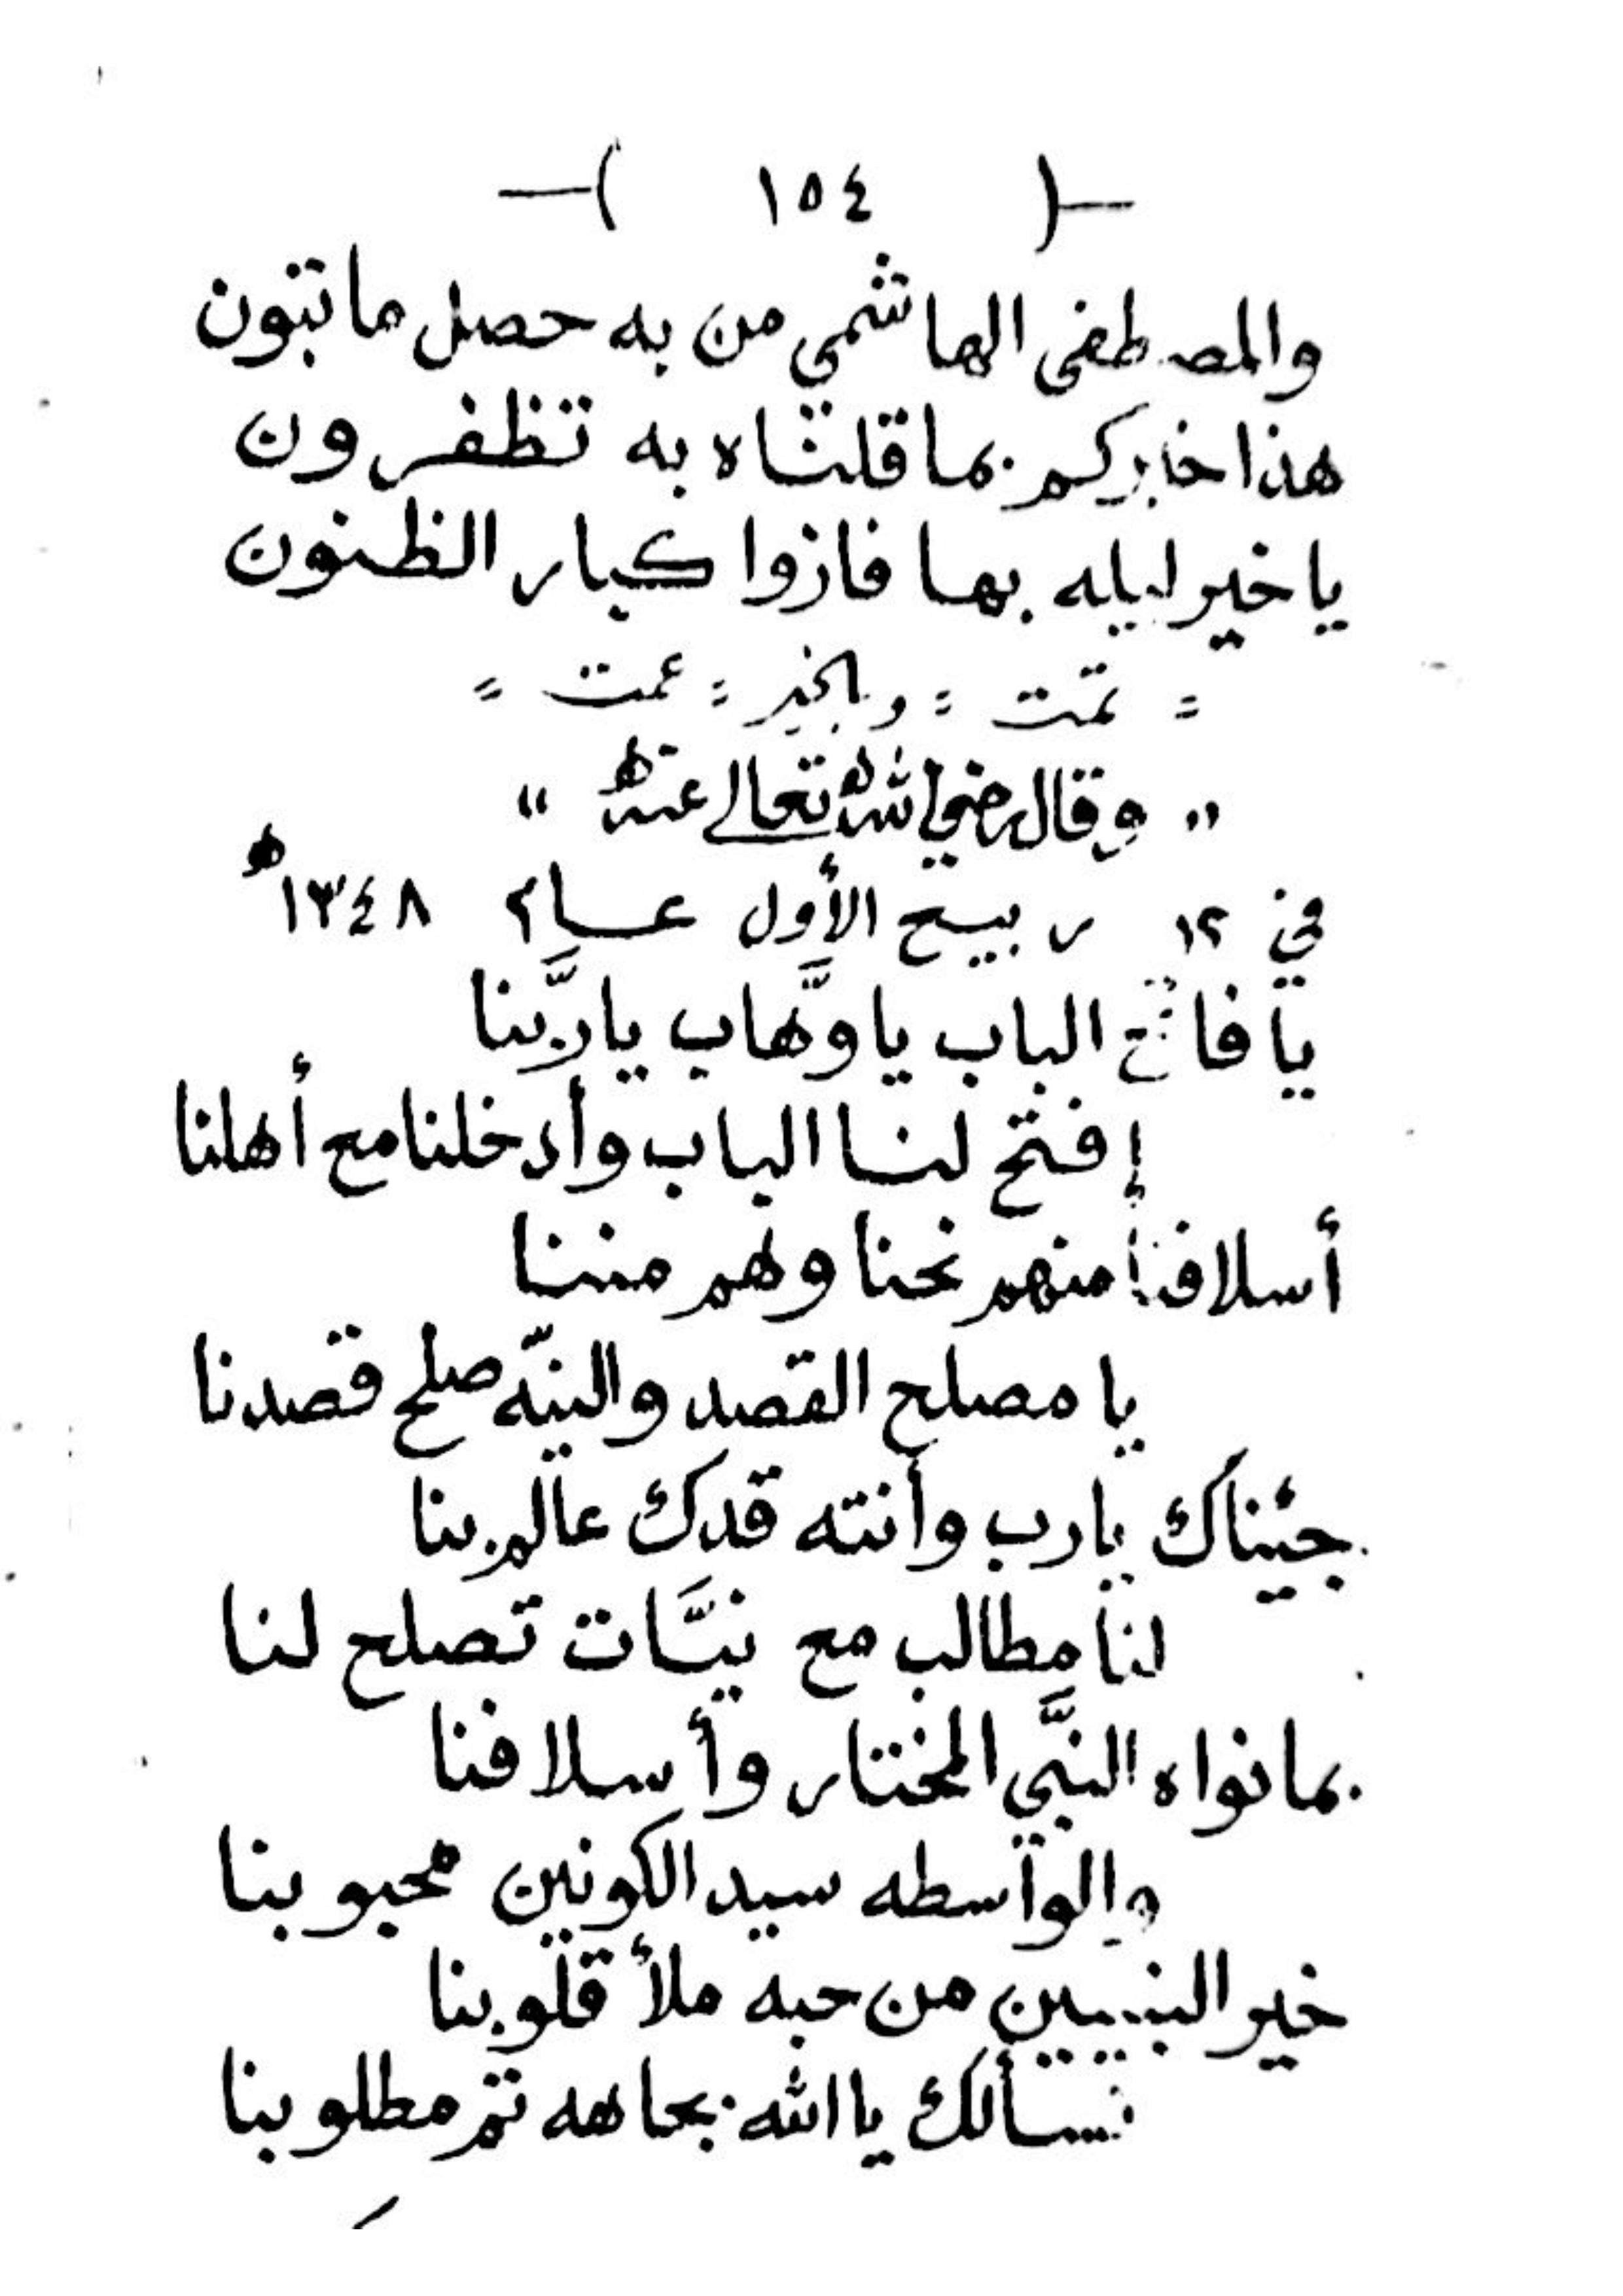 -( ١٥٤ )-
والمصطفى الهاشمي من به حصل ما تبون
هذا خابركم بما قلناه به تظفرون
يا خير ليله بها فازوا كبار الظنون
= تمت = وبالخير = عمت =
" وقال رضي الله تعالى عنه "
في ١٢ ربيع الأول عام ١٣٤٨ ه
يا فاتح الباب يا وهَّاب يا ربَّنا
إفتح لنا الباب وأدخلنا مع أهلنا
أسلافنا منهم نحنا وهم مننا
يا مصلح القصد والنيّه صلح قصدنا
جئناك يا رب وأنته قدك عالم بنا
لنا مطالب مع نيَّات تصلح لنا
بما نواه النبَّي المختار وأسلافنا
والواسطه سيد الكونين محبوبنا
خير النبيين من حبه ملأ قلوبنا
نسألك يا الله بجاهه تم مطلوبنا